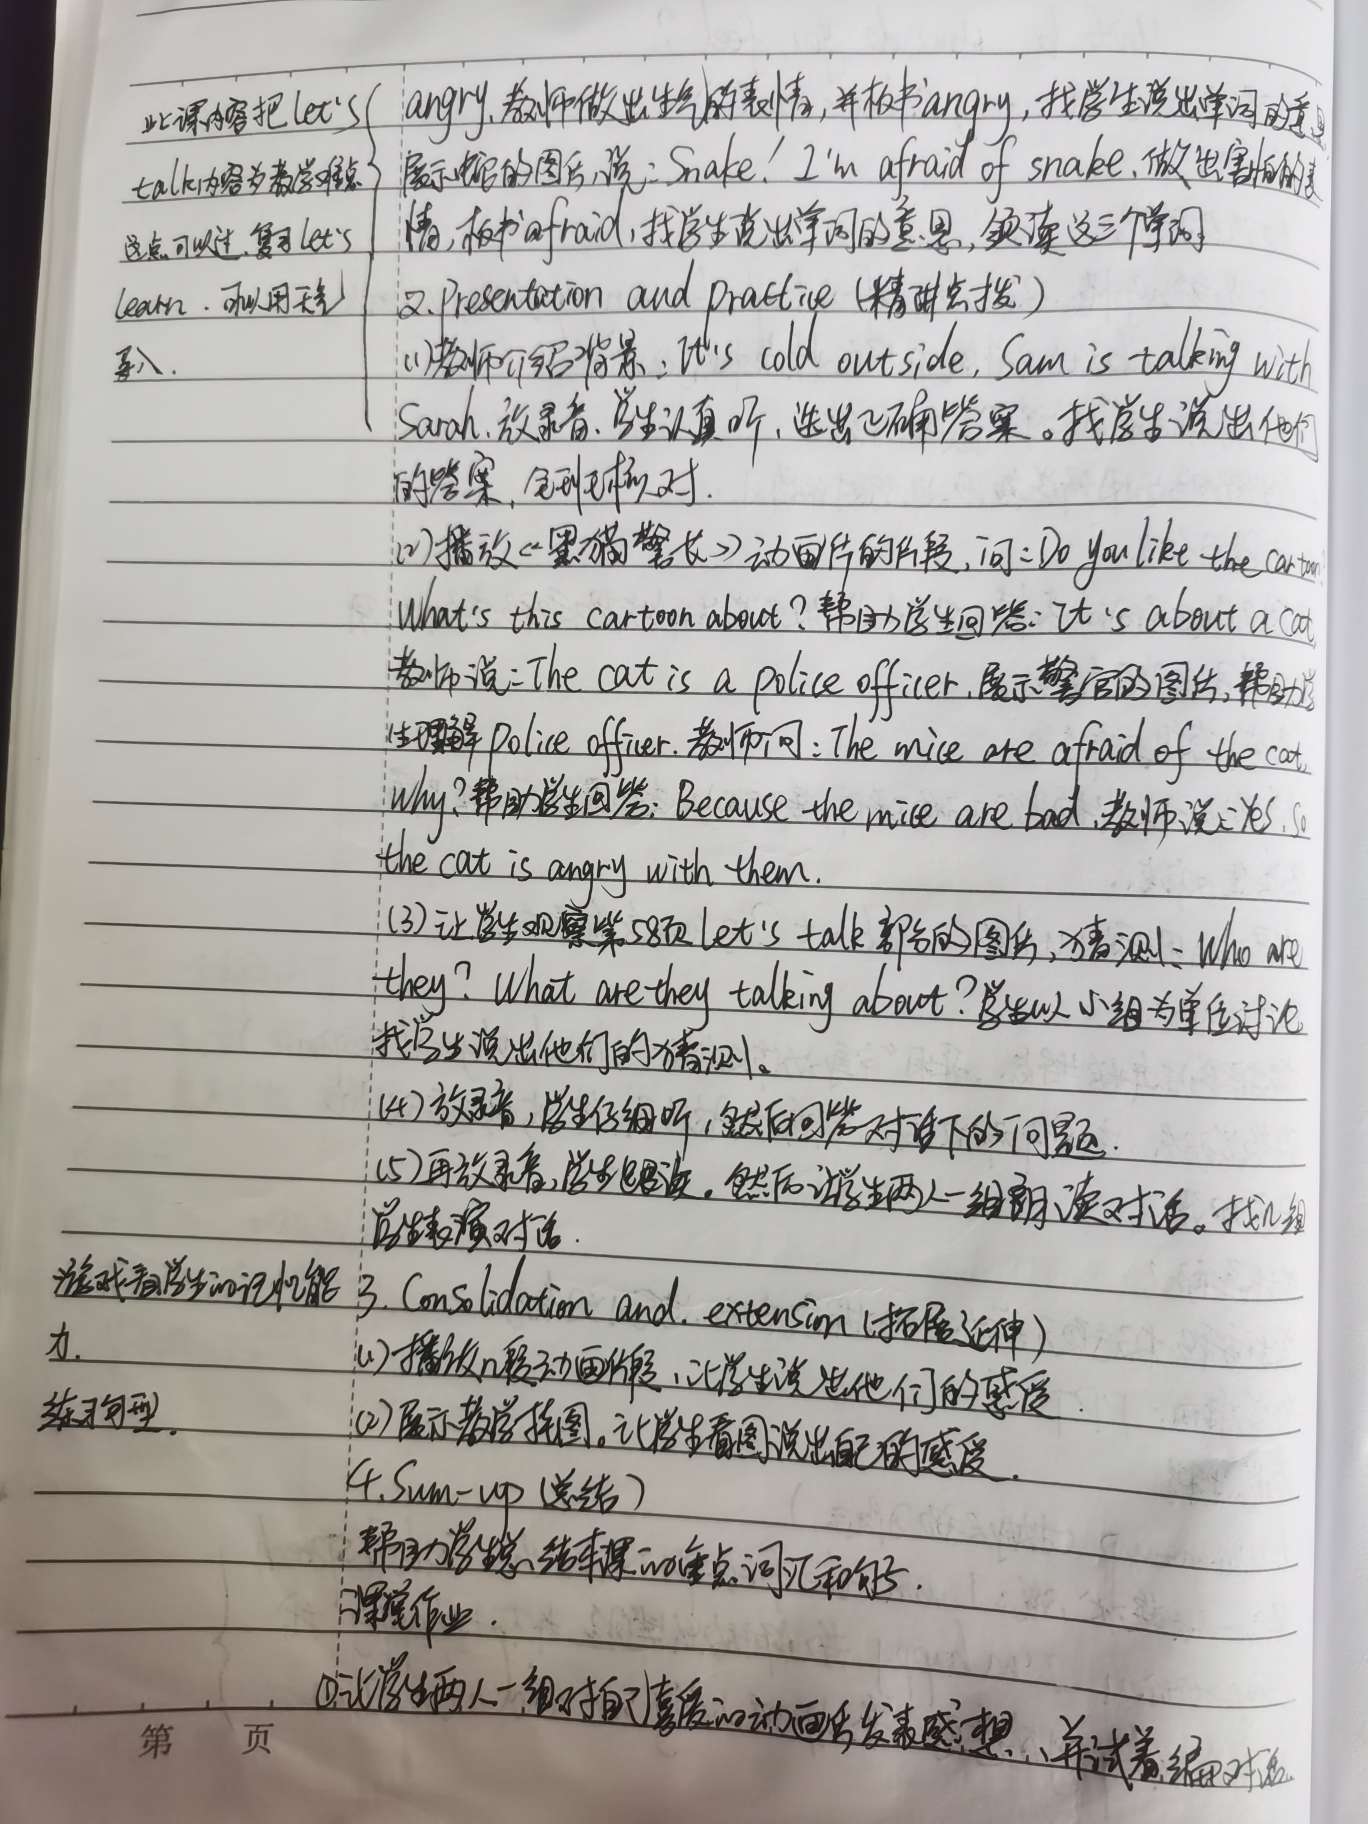 此课内容把let's
talk内容为教学难点
这点可以过.复习let's
learn.可以用天气
导入.
angry.教师做出生气的表情,并板书angry,找学生说出单词的意思
展示蛇的图片,说:Snake! I'm afraid of snake.做出害怕的表
情,板书afraid,找学生说出单词的意思,领读这三个单词
2.Presentation and practice(精讲点拨)
(1)教师介绍背景:It's cold outside, Sam is talking with
Sarah.放录音.学生认真听,选出正确答案。找学生说出他们
的答案,全班核对.
(2)播放《黑猫警长》动画片的片段,问:Do you like the cartoon?
What's this cartoon about?帮助学生回答:It's about a cat
教师说:The cat is a police officer.展示警官的图片,帮助学
生理解police officer.教师问:The mice are afraid of the cat,
Why?帮助学生回答:Because the mice are bad.教师说:Yes.so
the cat is angry with them.
(3)让学生观察第58页Let's talk部分的图片,猜测:Who are
they? What are they talking about?学生以小组为单位讨论
找学生说出他们的猜测。
(4)放录音,学生仔细听,然后回答对话下的问题.
(5)再放录音,学生跟读。然后让学生两人一组朗读对话。找几组
学生表演对话.
游戏看学生的记忆能
力.
练习句型.
3. Consolidation and. extension(拓展延伸)
(1)播放几段动画片段,让学生说出他们的感受.
(2)展示教学挂图。让学生看图说出自己的感受.
4.Sum-up(总结)
帮助学生总结本课的重点词汇和句子.
课堂作业.
①让学生两人一组对自己喜爱的动画片发表感想..,并试着编对话.